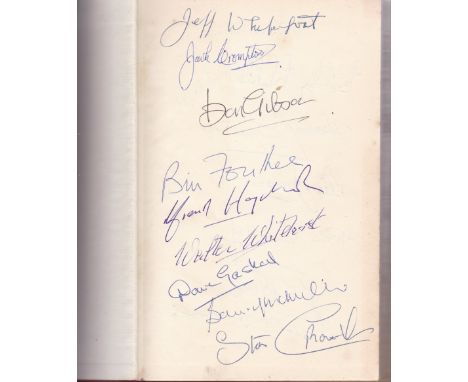 Jeff Whitefoot
Jack Crompton
Don Gibson
Bill Foulkes
Frank Haydock
Walter Whitehurst
Dave Gaskell
Sammy McMillan
Stan Crowther